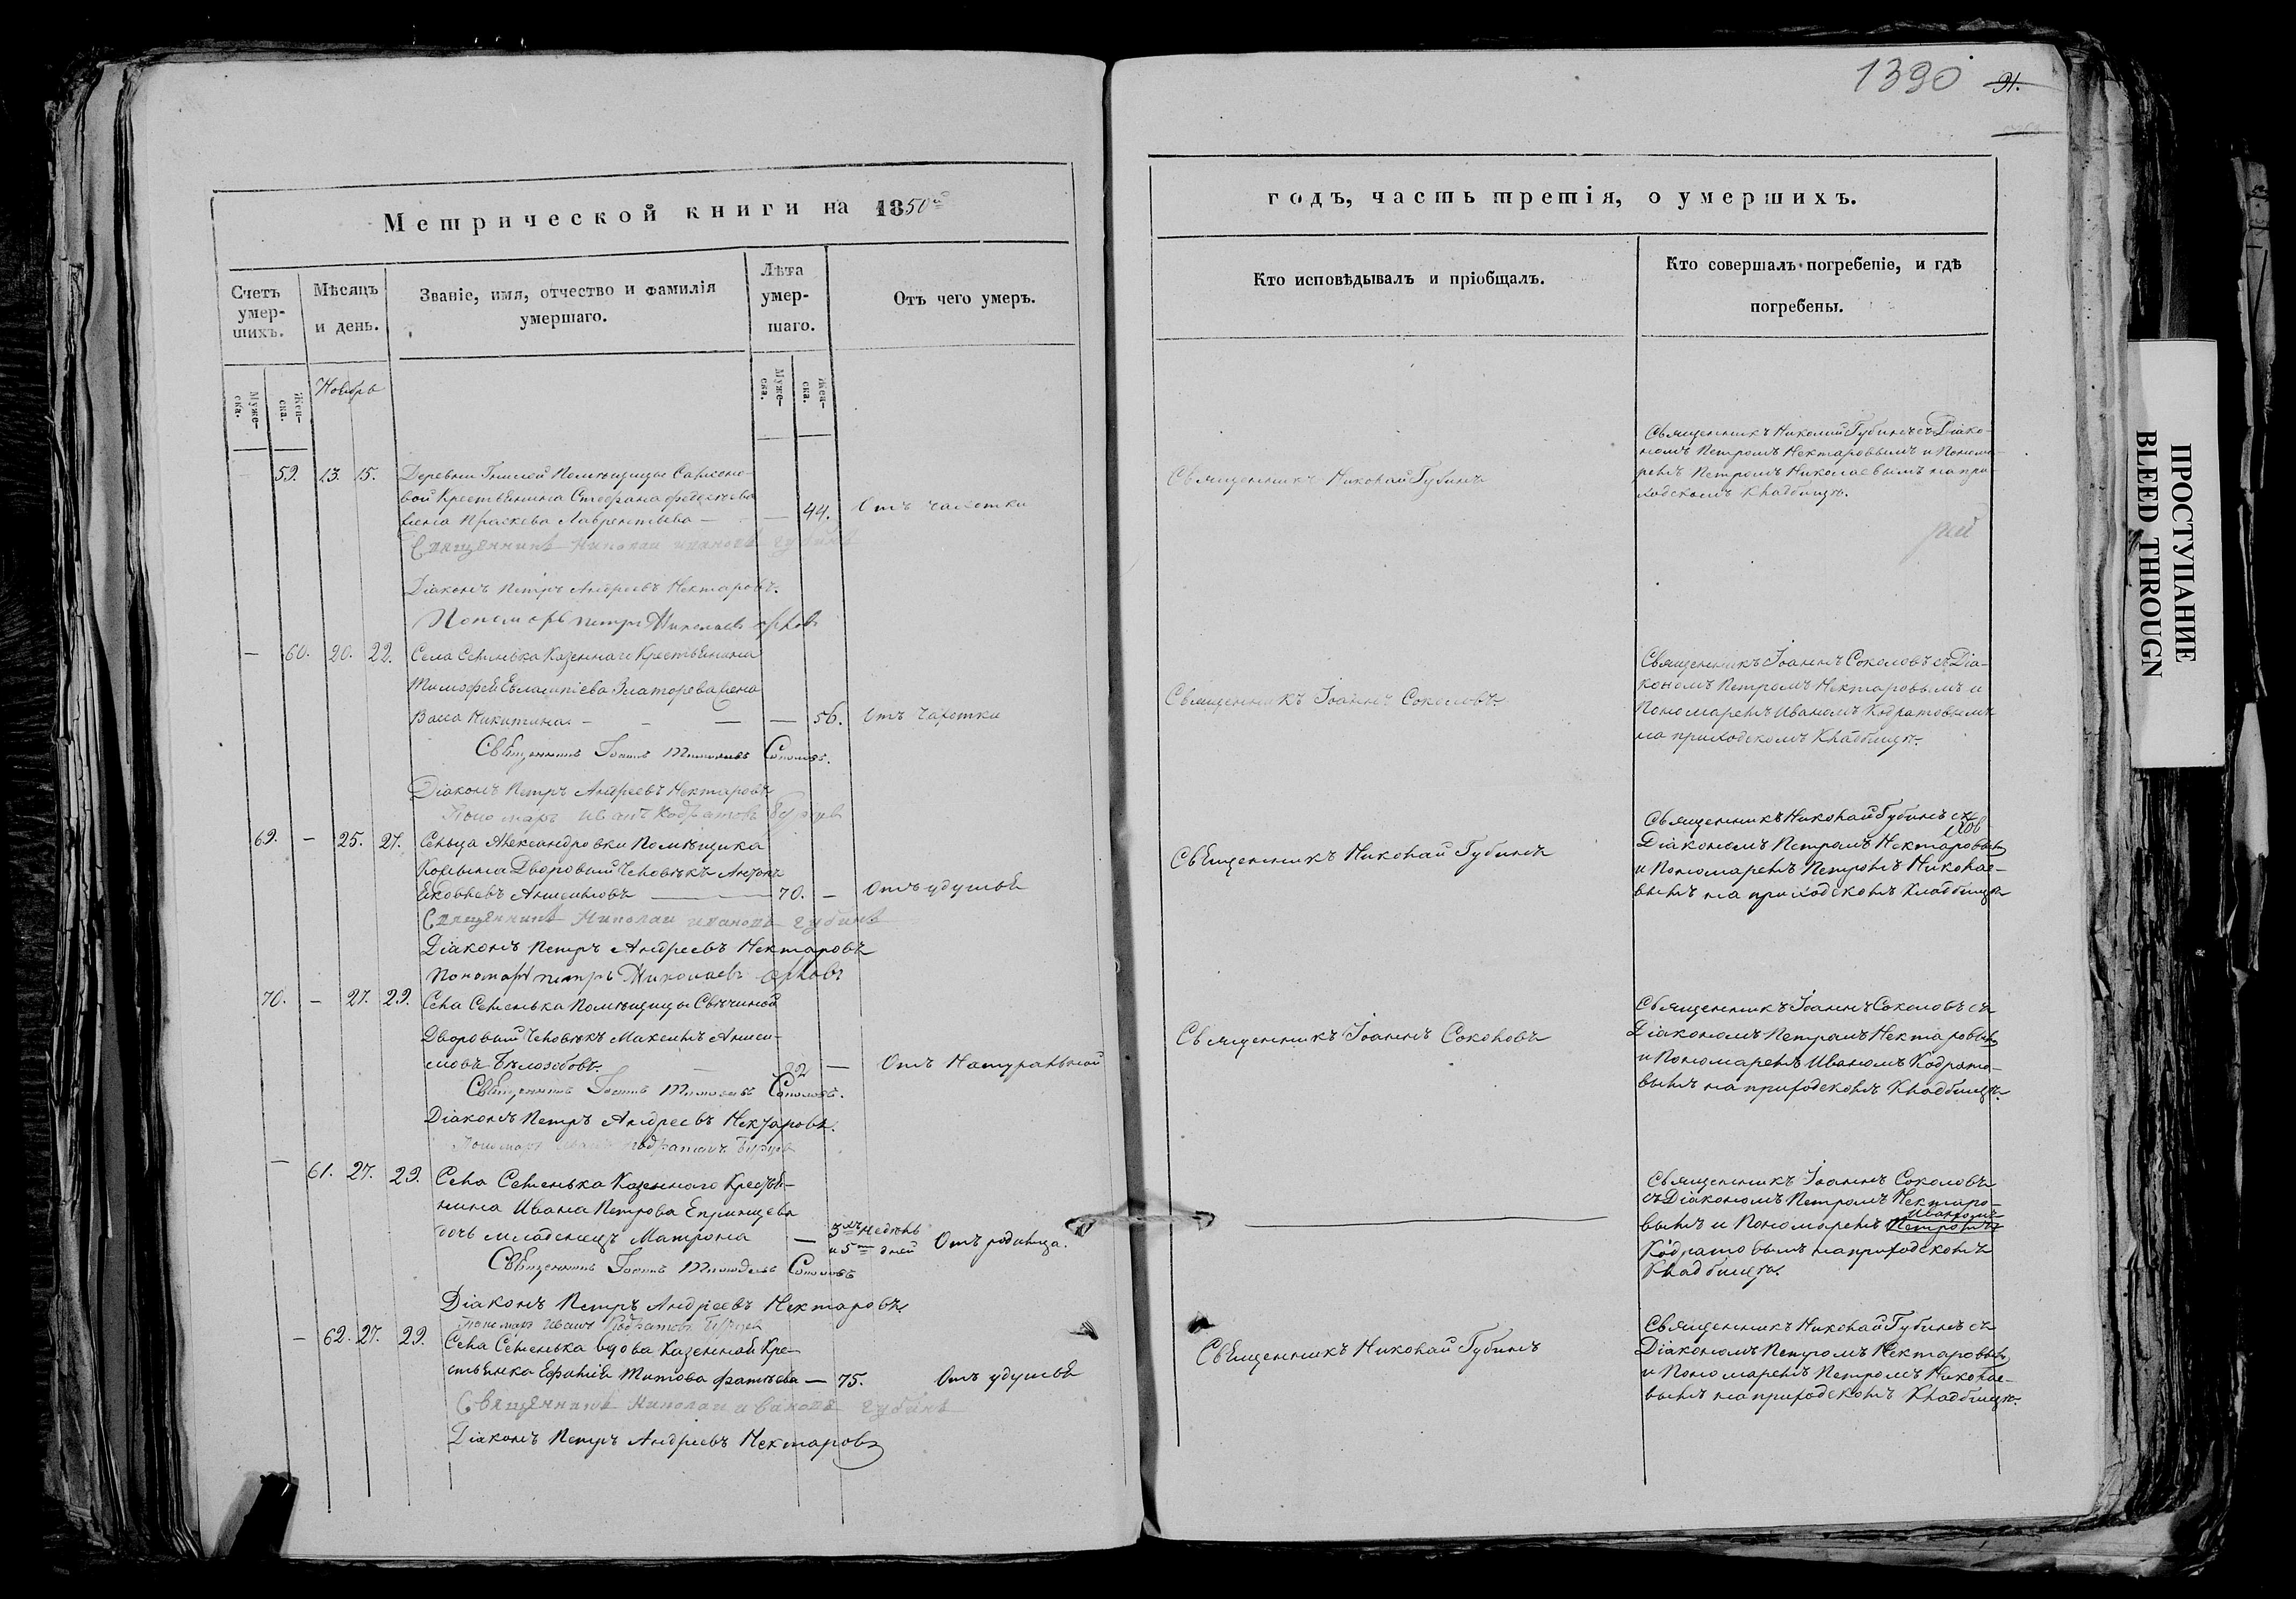 1390 91.
Метрической книги на 1850й
годъ, часть третія, о умершихъ.
Счетъ умер-шихъ.
Мѣсяцъ и день.
Званіе, имя, отчество и фамилія умершаго.
Лѣта умер-шаго.
Отъ чего умеръ.
Кто исповѣдывалъ и пріобщалъ.
Кто совершалъ погребеніе, и гдѣ погребены.
Муже-ска.
Жен-ска.
Ноябрь
Муже-ска.
Жен-ска.
59. 13. 15. Деревни Помѣщицы
вой Крестьянина Стефана
жена Праскева Лаврентьева — — 44. Отъ чахотки
Священникъ Николай Ивановъ Губинъ
Діаконъ Петръ Андреевъ Нектаровъ.
Пономарь петръ Николаевъ
Священникъ Николай Губинъ
Священникъ Николай Губинъ съ Діако-
номъ Петромъ Нектаровымъ и Понома-
ремъ Петромъ Николаевымъ на при-
ходскомъ Кладбищѣ.
— 60. 20. 22. Села Сетенька Казеннаго Крестьянина
Тимофея Евлампіева жена
Васса Никитина — — — — 56. Отъ чахотки
Священникъ Іоаннъ Соколовъ.
Діаконъ Петръ Андреевъ Нектаровъ
Пономарь Иванъ Кодратовъ
Священникъ Іоаннъ Соколовъ.
Священникъ Іоаннъ Соколовъ съ Діа-
кономъ Петромъ Нектаровымъ и
Пономаремъ Иваномъ Кодратовымъ
на приходскомъ Кладбищѣ.
69. — 25. 27. Сельца Александровки Помѣщика
Дворовый Человѣкъ Антонъ
Яковлевъ Анисимовъ — 70. — Отъ удушья
Священникъ Николай Ивановъ Губинъ
Діаконъ Петръ Андреевъ Нектаровъ
Пономарь петръ Николаевъ
Священникъ Николай Губинъ
Священникъ Николай Губинъ съ
Діакономъ Петромъ Нектаровымъ
и Пономаремъ Петромъ Николае-
вымъ на приходскомъ кладбищѣ
70. — 27. 29. Села Сетенька Помѣщицы Свѣчиной
Дворовый Человѣкъ Максимъ Аниси-
мовъ Бѣлозобовъ. — 22 — Отъ Натуральной
Священникъ Іоаннъ Соколовъ.
Діаконъ Петръ Андреевъ Нектаровъ.
Пономарь Иванъ Кодратовъ
Священникъ Іоаннъ Соколовъ
Священникъ Іоаннъ Соколовъ съ
Діакономъ Петромъ Нектаровымъ
и Пономаремъ Иваномъ Кодрато-
вымъ на приходскомъ Кладбищѣ.
— 61. 27. 29. Села Сетенька Казеннаго Крестья-
нина Ивана Петрова
дочь младенецъ Матрона — 3хъ недѣль
и 5ти дней Отъ родимца.
Священникъ Іоаннъ Соколовъ
Діаконъ Петръ Андреевъ Нектаровъ.
Пономарь Иванъ Кодратовъ
Священникъ Іоаннъ Соколовъ
съ Діакономъ Петромъ Нектаро-
Иваномъ
вымъ и Пономаремъ Петромъ
Кодратовымъ на приходскомъ
Кладбищѣ.
— 62. 27. 29. Села Сетенька вдова Казенной Кре-
стьянка Титова — 75. Отъ удушья
Священникъ Николай Ивановъ Губинъ
Діаконъ Петръ Андреевъ Нектаровъ
Священникъ Николай Губинъ
Священникъ Николай Губинъ съ
Діакономъ Петромъ Нектаровымъ
и Пономаремъ Петромъ Николае-
вымъ на приходскомъ Кладбищѣ.
ПРОСТУПАНИЕ
BLEED THROUGN